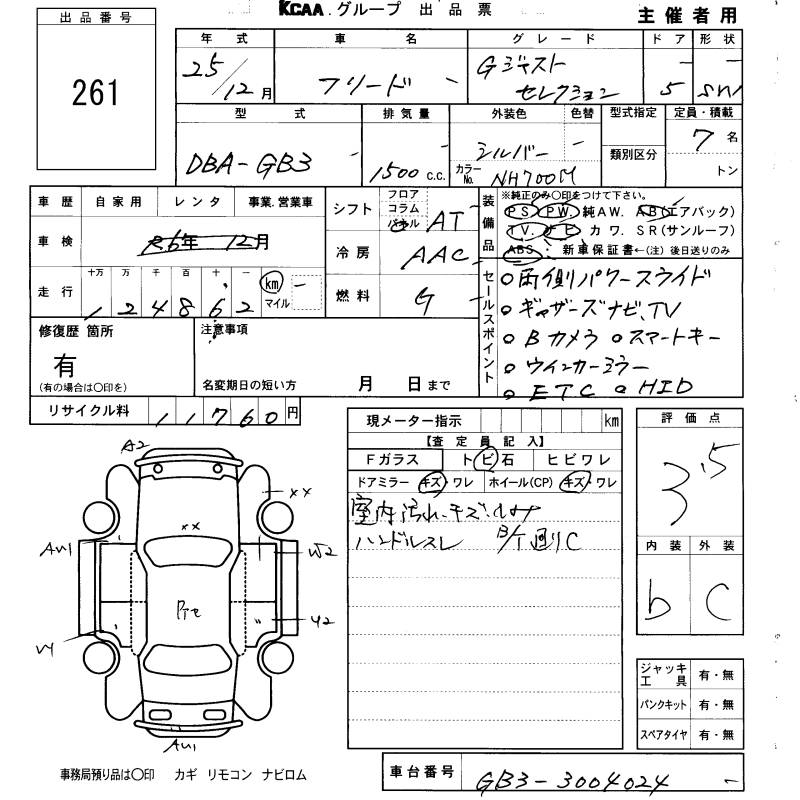 KCAA.グループ 出品票
主催者用
出品番号
261
年式 車名 グレード ドア 形状
25/12月 フリード - Gジャスト セレクション 5 SW
型式 排気量 外装色 色替 型式指定 定員・積載
DBA-GB3 1500 c.c. シルバー 類別区分 7名
カラーNo. NH700M トン
車歴 自家用 レンタ 事業.営業車
車検 R6年 12月
走行 十万 万 千 百 十 一 km マイル
124862
シフト フロア コラム パネル AT
冷房 AAC
燃料 G
装備品
※純正のみ○印をつけて下さい。
PS. PW. 純AW. AB(エアバック)
TV. ナビ カワ. SR(サンルーフ)
ABS. 新車保証書←(注)後日送りのみ
セールスポイント
○両側パワースライド
○ギャザーズナビ、TV
○Bカメラ ○スマートキー
○ウインカーミラー
○ETC ○HID
修復歴 箇所
有
(有の場合は○印を)
注意事項
名変期日の短い方 月 日まで
リサイクル料 11760円
現メーター指示 km
【査定員記入】
Fガラス トビ石 ヒビワレ
ドアミラー キズ・ワレ ホイール(CP) キズ・ワレ
室内汚れ、キズ、しみ
ハンドルスレ B/T廻りC
評価点
3.5
内装 外装
b C
A2
××
××
AU1
W2
Y2
AU1
ジャッキ工具 有・無
パンクキット 有・無
スペアタイヤ 有・無
事務局預り品は○印 カギ リモコン ナビロム
車台番号 GB3-3004024 -